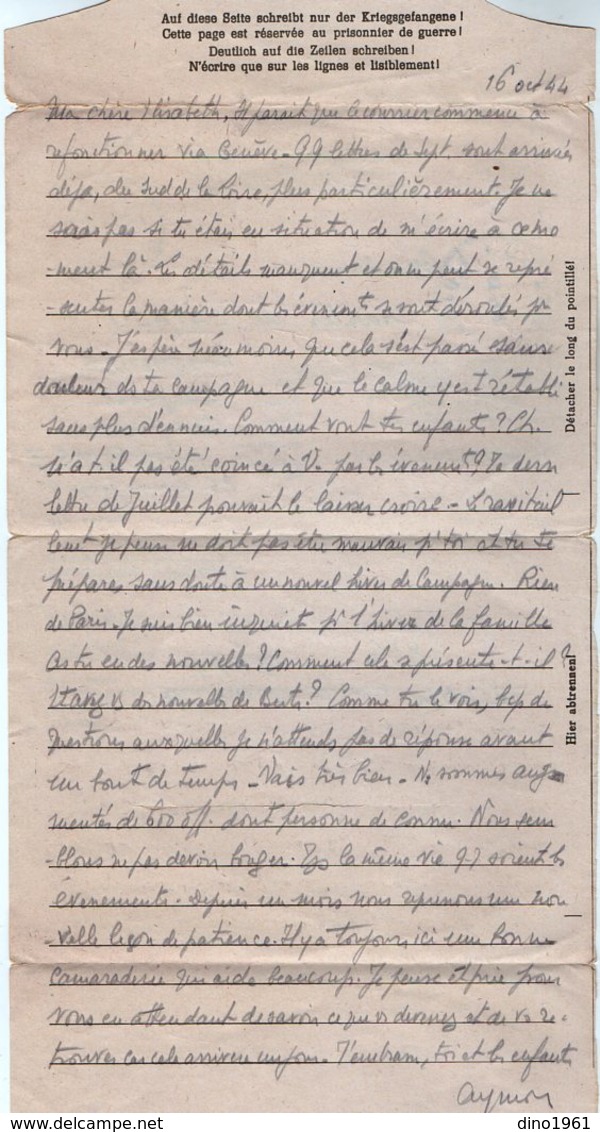 Auf diese Seite schreibt nur der Kriegsgefangene!
Cette page est réservée au prisonnier de guerre!
Deutlich auf die Zeilen schreiben!
N'écrire que sur les lignes et lisiblement!
16 oct 44
Ma chère Elisabeth, Il parait que le courrier commence à
refonctionner via Genève - 99 lettres de Sept. sont arrivées
déjà, du Sud de la Loire, plus particulièrement. Je ne
sais pas si tu étais en situation de m'écrire à ce mo
-ment là. Les détails manquent et on ne peut se repré
-senter la manière dont les évènemts se sont déroulés pr
vous - J'espère néanmoins que cela s'est passé sans
douleur ds ta campagne et que le calme y est rétabli
sans plus d'ennuis. Comment vont tes enfants? Ch.
n'a t'il pas été coincé à V. par les évènemts? Ta dern
lettre de Juillet pourrait le laisser croire - Le ravitail
lemt je pense ne doit pas être mauvais pr toi et tu te
prépares sans doute à un nouvel hiver de campagne. Rien
de Paris. Je suis bien inquiet pr l'hiver de la famille
As tu eu des nouvelles? Comment cela se présente-t-il?
Et avez vs des nouvelles de ? Comme tu le vois, bcp de
questions auxquelles je n'attends pas de réponse avant
un bout de temps - Vais très bien - Ns sommes aug
mentés de 600 off. dont personne de connu. Nous sem
-blons ne pas devoir bouger. la même vie q-q soient les
évènements - Depuis un mois nous reprenons une nou
-velle leçon de patience. Il y a toujours ici une bonne
camaraderie qui aide beaucoup. Je pense et prie pour
vous en attendant de savoir ce que vs devenez et de vs re-
trouver car cela arrivera un jour - J'embrasse, toi et les enfants
Aymon
Détacher le long du pointillé!
Hier abtrennen!
dino1961